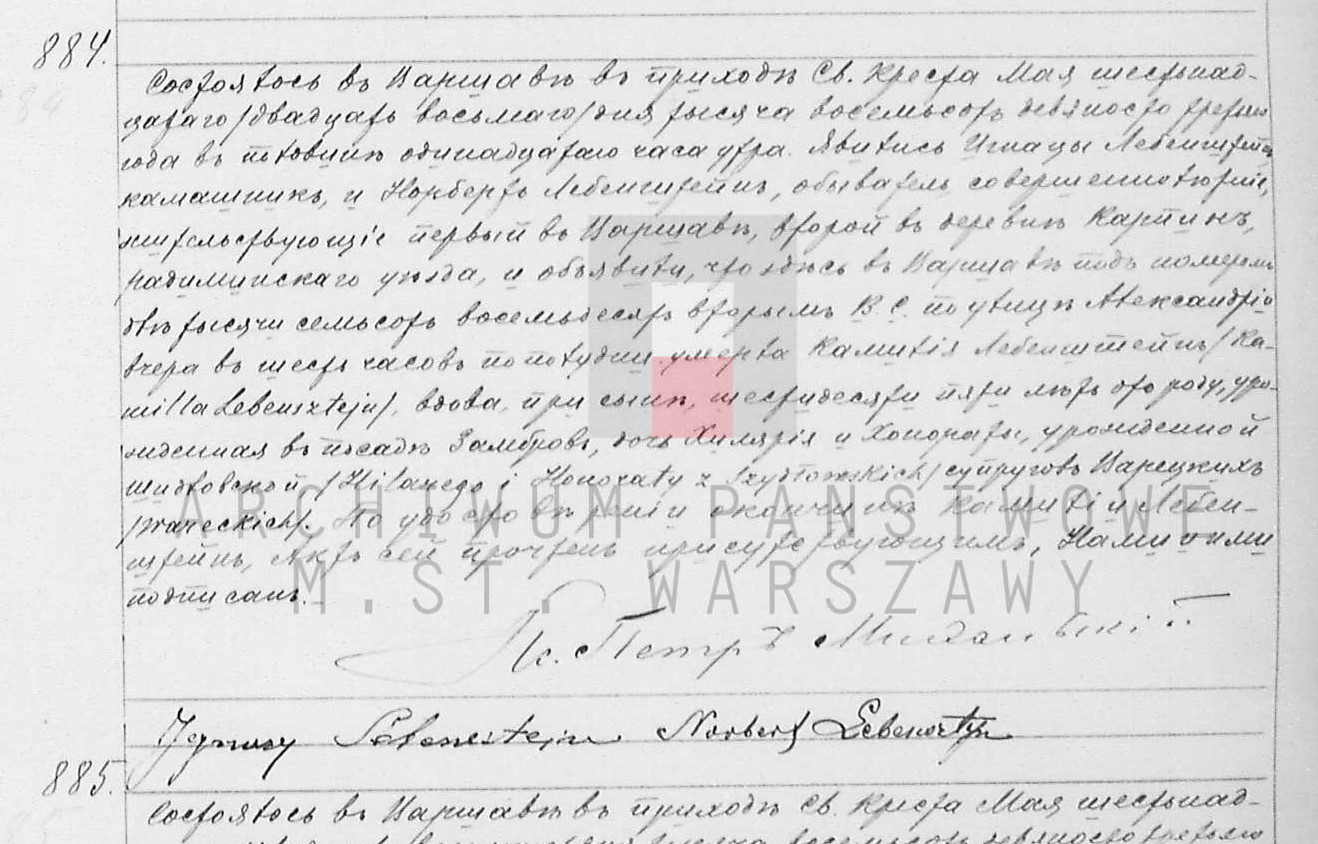 884.
Состоялось въ Варшавѣ въ приходѣ Св. Креста Мая шестьнад-
цатаго /двадцать восьмаго/ дня тысяча восемьсотъ девяносто третьяго
года въ половинѣ одинадцатаго часа утра. Явились Игнацы Лебенштейнъ
камашникъ, и Норбертъ Лебенштейнъ, обыватель, совершеннолѣтніе,
жительствующіе первый въ Варшавѣ, второй въ деревнѣ Карпинъ,
радиминскаго уѣзда, и объявили, что здѣсь въ Варшавѣ подъ номеромъ
двѣ тысячи семьсотъ восемьдесятъ вторымъ В. С. по улицѣ Александрія
вчера въ шесть часовъ пополудни умерла Камилія Лебенштейнъ /Ka-
milla Lebensztejn/, вдова, при сынѣ, шестидесяти пяти лѣтъ отъ роду, уро-
жденная въ посадѣ Замбровъ, дочь Хилярія и Хонораты, урожденной
Шидловской /Hilarego i Honoraty z Szydłowskich/ супруговъ Варецкихъ
/Wareckich/. По удостовѣреніи о кончинѣ Камиліи Лебен-
штейнъ, Актъ сей прочтенъ присутствующимъ, Нами и ими
подписанъ.
Кс. Петръ
Ignacy Lebensztejn Norbert Lebensztejn
885.
Состоялось въ Варшавѣ въ приходѣ Св. Креста Мая шестьнад-
тысяча восемьсотъ девяносто третьяго
ARCHIWUM PAŃSTWOWE
M.ST. WARSZAWY